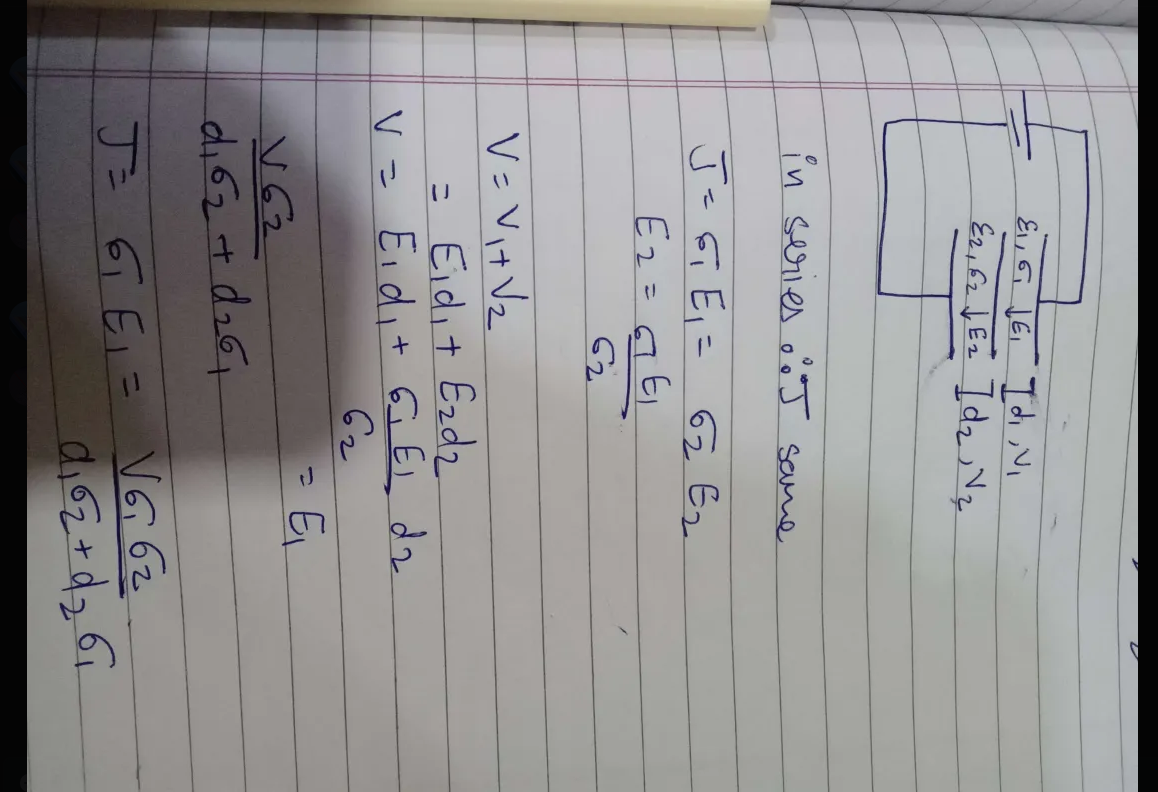 ε₁, σ₁ ↓E₁ ] d₁, V₁
ε₂, σ₂ ↓E₂ ] d₂, V₂
in series ∴ J same
J = σ₁ E₁ = σ₂ E₂
E₂ = σ₁ E₁ / σ₂
V = V₁ + V₂
= E₁d₁ + E₂d₂
V = E₁d₁ + σ₁E₁ / σ₂ d₂
Vσ₂ / d₁σ₂ + d₂σ₁ = E₁
J = σ₁ E₁ = Vσ₁σ₂ / d₁σ₂ + d₂σ₁